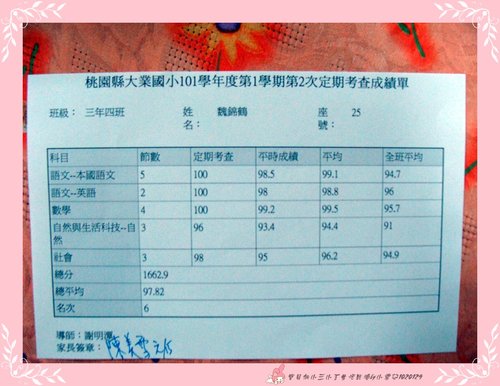 桃園縣大業國小101學年度第1學期第2次定期考查成績單
班級： 三年四班 姓名： 魏錦鶴 座號： 25
科目 節數 定期考查 平時成績 平均 全班平均
語文--本國語文 5 100 98.5 99.1 94.7
語文--英語 2 100 98 98.8 96
數學 4 100 99.2 99.5 95.7
自然與生活科技--自然 3 96 93.4 94.4 91
社會 3 98 95 96.2 94.9
總分 1662.9
總平均 97.82
名次 6
導師：謝明
家長簽章：陳美雪